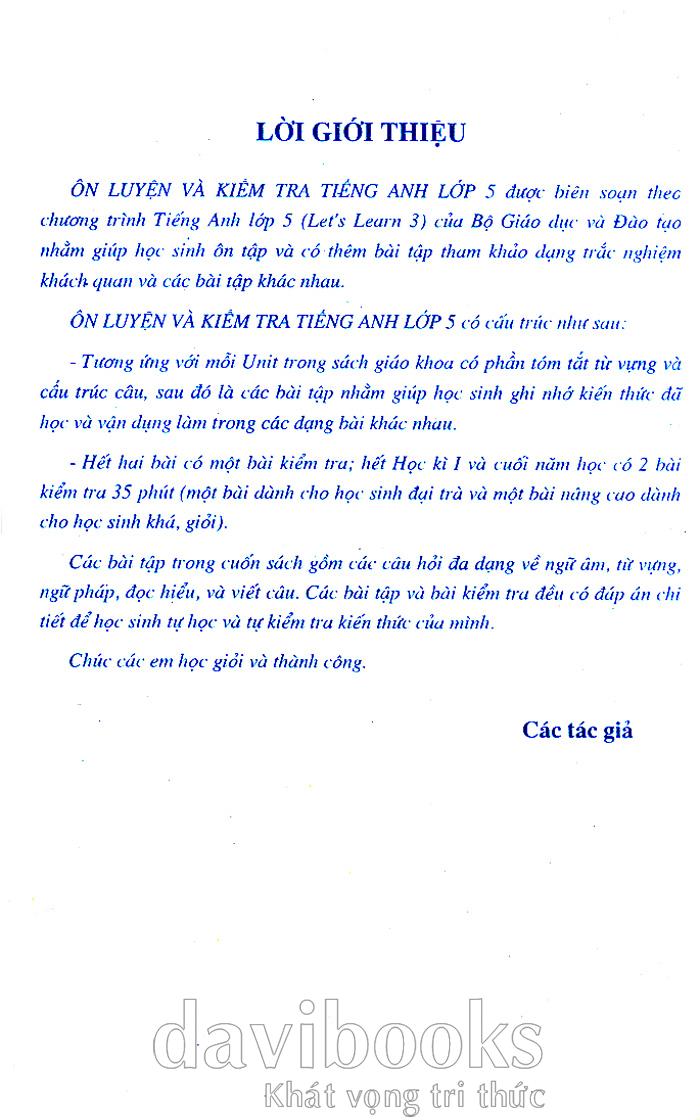 LỜI GIỚI THIỆU
ÔN LUYỆN VÀ KIỂM TRA TIẾNG ANH LỚP 5 được biên soạn theo
chương trình Tiếng Anh lớp 5 (Let's Learn 3) của Bộ Giáo dục và Đào tạo
nhằm giúp học sinh ôn tập và có thêm bài tập tham khảo dạng trắc nghiệm
khách quan và các bài tập khác nhau.
ÔN LUYỆN VÀ KIỂM TRA TIẾNG ANH LỚP 5 có cấu trúc như sau:
- Tương ứng với mỗi Unit trong sách giáo khoa có phần tóm tắt từ vựng và
cấu trúc câu, sau đó là các bài tập nhằm giúp học sinh ghi nhớ kiến thức đã
học và vận dụng làm trong các dạng bài khác nhau.
- Hết hai bài có một bài kiểm tra; hết Học kì I và cuối năm học có 2 bài
kiểm tra 35 phút (một bài dành cho học sinh đại trà và một bài nâng cao dành
cho học sinh khá, giỏi).
Các bài tập trong cuốn sách gồm các câu hỏi đa dạng về ngữ âm, từ vựng,
ngữ pháp, đọc hiểu, và viết câu. Các bài tập và bài kiểm tra đều có đáp án chi
tiết để học sinh tự học và tự kiểm tra kiến thức của mình.
Chúc các em học giỏi và thành công.
Các tác giả
davibooks
Khát vọng tri thức